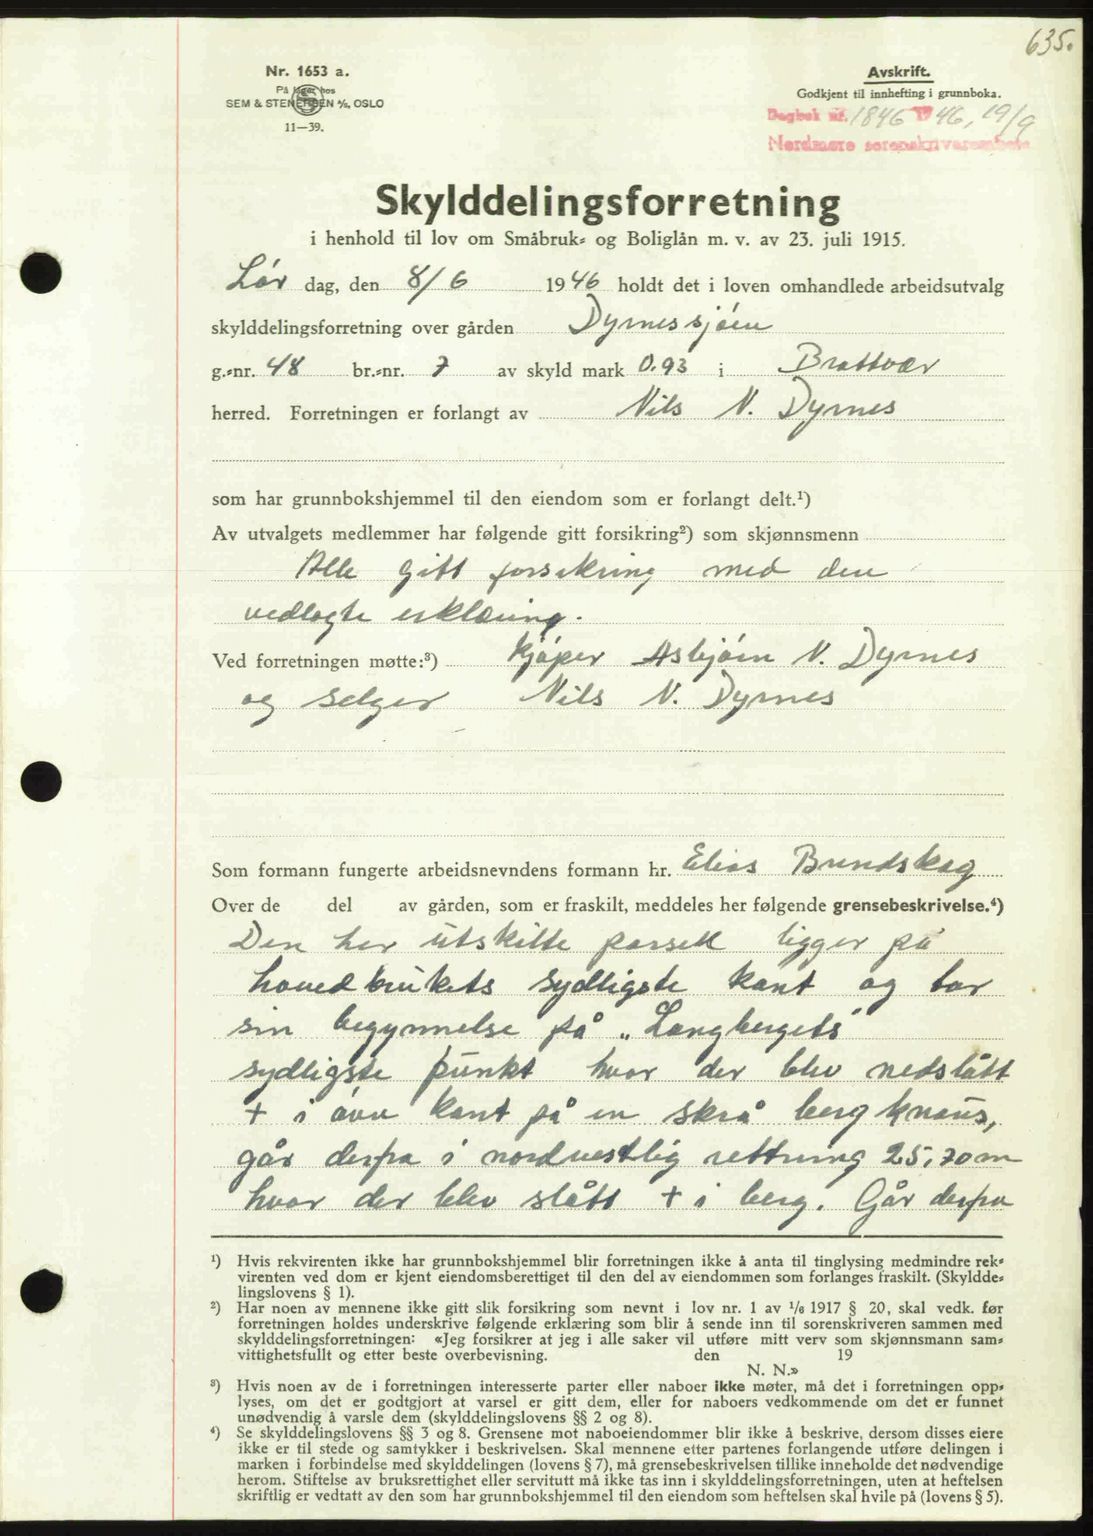 635.
Nr. 1653 a.
På lager hos
SEM & STENERSEN A/S, OSLO
11—39.
Avskrift.
Godkjent til innhefting i grunnboka.
Dagbok nr. 1846 1946, 19/9
Nordmøre sorenskrivarembete
Skylddelingsforretning
i henhold til lov om Småbruk= og Boliglån m. v. av 23. juli 1915.
Lør dag, den 8/6 1946 holdt det i loven omhandlede arbeidsutvalg
skylddelingsforretning over gården Dyrnessjøen
g.=nr. 48 br.=nr. 7 av skyld mark 0.93 i Brattvær
herred. Forretningen er forlangt av Nils N. Dyrnes
som har grunnbokshjemmel til den eiendom som er forlangt delt.¹)
Av utvalgets medlemmer har følgende gitt forsikring²) som skjønnsmenn
Alle gitt forsikring med den
vedlagte erklæring.
Ved forretningen møtte:³) Kjøper Asbjørn N. Dyrnes
og selger Nils N. Dyrnes
Som formann fungerte arbeidsnevndens formann hr. Elias Brundskog
Over de del av gården, som er fraskilt, meddeles her følgende grensebeskrivelse.⁴)
Den her utskilte parsell ligger på
hovedbrukets sydligste kant og tar
sin begynnelse på „Langbergets"
sydligste punkt hvor der blev nedslått
+ i øvre kant på en skrå berg knaus,
går derfra i nordvestlig rettning 25,70 m
hvor der blev slått + i berg. Går derfra
¹) Hvis rekvirenten ikke har grunnbokshjemmel blir forretningen ikke å anta til tinglysing medmindre rek=
virenten ved dom er kjent eiendomsberettiget til den del av eiendommen som forlanges fraskilt. (Skyldde=
lingslovens § 1).
²) Har noen av mennene ikke gitt slik forsikring som nevnt i lov nr. 1 av 1/6 1917 § 20, skal vedk. før
forretningen holdes underskrive følgende erklæring som blir å sende inn til sorenskriveren sammen med
skylddelingsforretningen: «Jeg forsikrer at jeg i alle saker vil utføre mitt verv som skjønnsmann sam=
vittighetsfullt og etter beste overbevisning. den 19
N. N.»
³) Hvis noen av de i forretningen interesserte parter eller naboer ikke møter, må det i forretningen opp=
lyses, om det er godtgjort at varsel er gitt dem, eller for naboers vedkommende om det er funnet
unødvendig å varsle dem (skylddelingslovens §§ 2 og 8).
⁴) Se skylddelingslovens §§ 3 og 8. Grensene mot naboeiendommer blir ikke å beskrive, dersom disses eiere
ikke er til stede og samtykker i beskrivelsen. Skal mennene etter partenes forlangende utføre delingen i
marken i forbindelse med skylddelingen (lovens § 7), må grensebeskrivelsen tillike inneholde det nødvendige
herom. Stiftelse av bruksrettighet eller servitutt må ikke tas inn i skylddelingsforretningen, uten at heftelsen
skriftlig er vedtatt av den som har grunnbokshjemmel til den eiendom som heftelsen skal hvile på (lovens § 5).